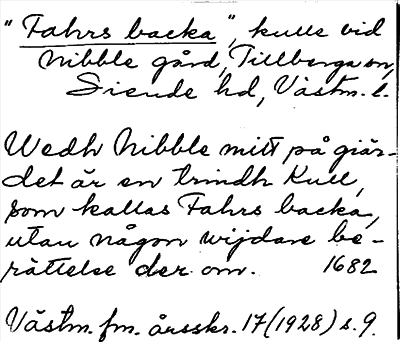 "Fahrs backa", kulle vid
Nibble gård, Tillberga sn,
Siende hd, Västm. l.
Wedh Nibble mitt på giär-
det är en trindh Kull,
som kallas Fahrs backa,
utan någon wijdare be-
rättelse der om. 1682
Västm. fm. årsskr. 17 (1928) s. 9.